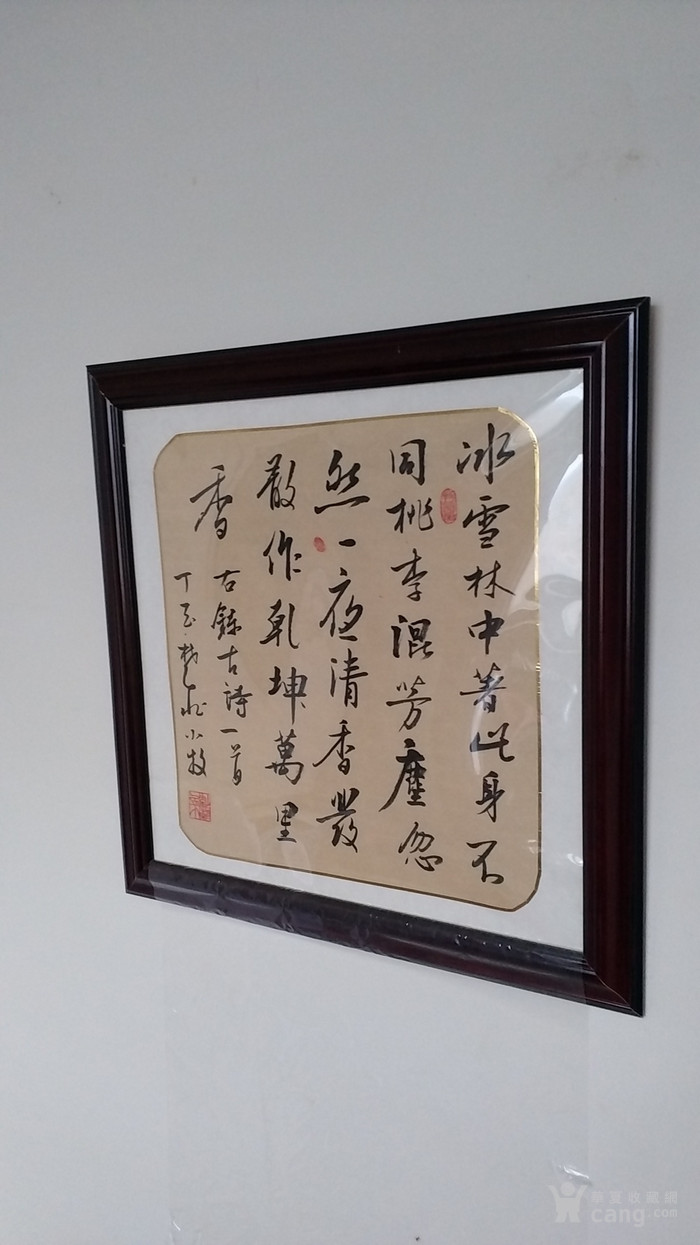 冰雪林中著此身不
同桃李混芳塵忽
然一夜清香發
散作乾坤萬里
香
古錄古詩一首
丁酉
小牧
華夏收藏網
cang.com